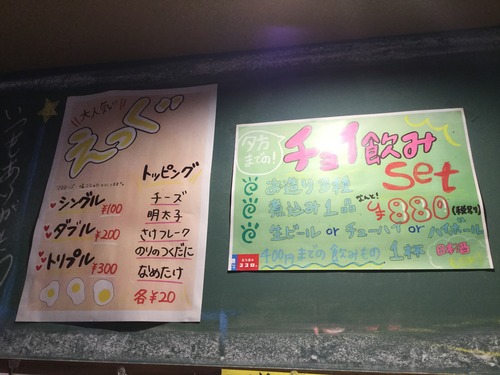 大人気!!
えっぐ
シングル ¥100
ダブル ¥200
トリプル ¥300
トッピング
チーズ
明太子
さけフレーク
のりのつくだに
なめたけ
各¥20
夕方までの!
チョイ飲みset
お造り3種
煮込み1品
なんと!
¥880(税別)
生ビール or チューハイ or ハイボール
400円までの飲みもの 1杯